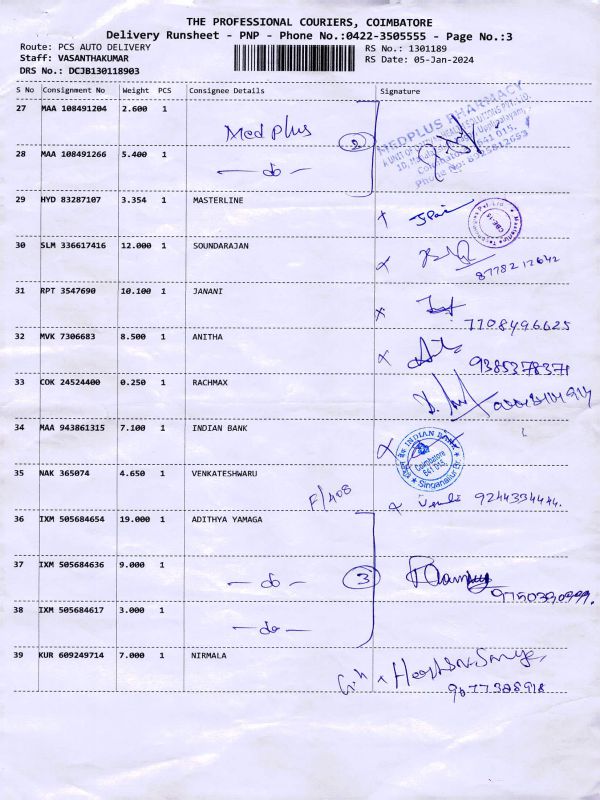 THE PROFESSIONAL COURIERS, COIMBATORE
Delivery Runsheet - PNP - Phone No.:0422-3505555 - Page No.:3
Route: PCS AUTO DELIVERY
RS No.: 1301189
Staff: VASANTHAKUMAR
RS Date: 05-Jan-2024
DRS No.: DCJB130118903
S No Consignment No Weight PCS Consignee Details Signature
27 MAA 108491204 2.600 1 Med plus
MEDPLUS PHARMACY
28 MAA 108491266 5.400 1 — do —
2
29 HYD 83287107 3.354 1 MASTERLINE
30 SLM 336617416 12.000 1 SOUNDARAJAN
8778212642
31 RPT 3547690 10.100 1 JANANI
7708496625
32 MVK 7306683 8.500 1 ANITHA
9385378371
33 COK 24524400 0.250 1 RACHMAX
34 MAA 943861315 7.100 1 INDIAN BANK
INDIAN BANK
Coimbatore
641 015.
Singanallur Br.
35 NAK 365074 4.650 1 VENKATESHWARU
F/408
9244334444.
36 IXM 505684654 19.000 1 ADITHYA YAMAGA
37 IXM 505684636 9.000 1 — do —
3
9750330999.
38 IXM 505684617 3.000 1 — do —
39 KUR 609249714 7.000 1 NIRMALA